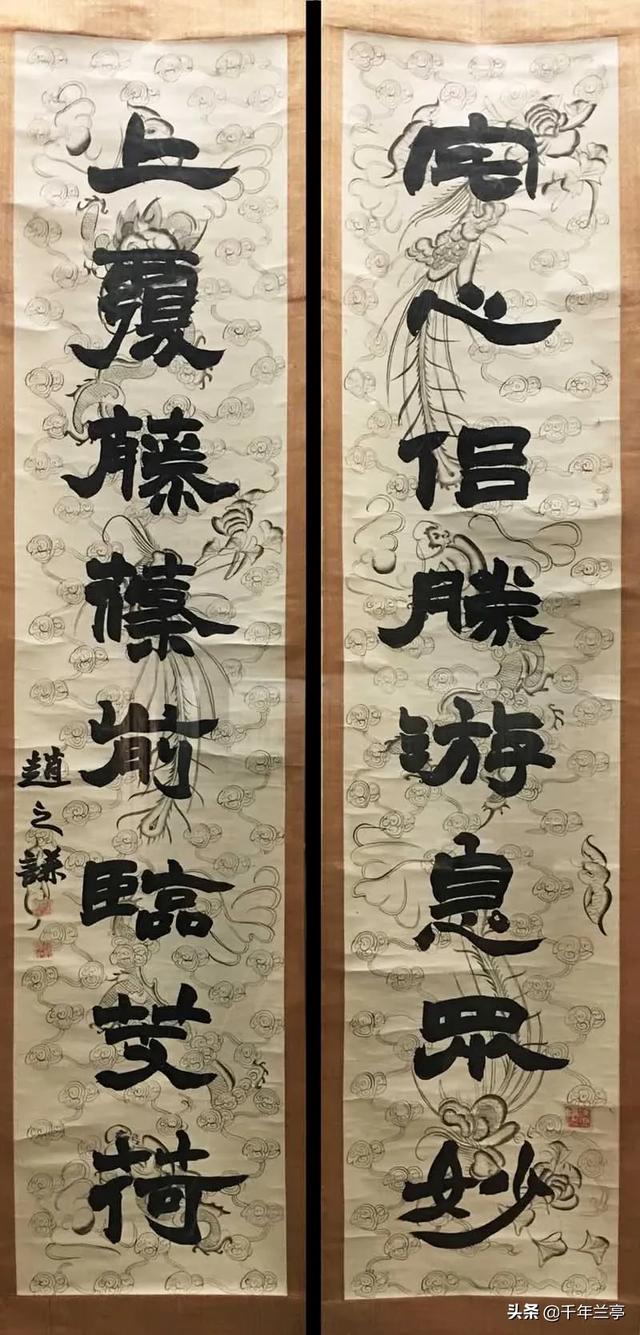 宅心侶勝游息眾妙
上覆藤蓧前臨芰荷
趙之謙
头条 @千年兰亭